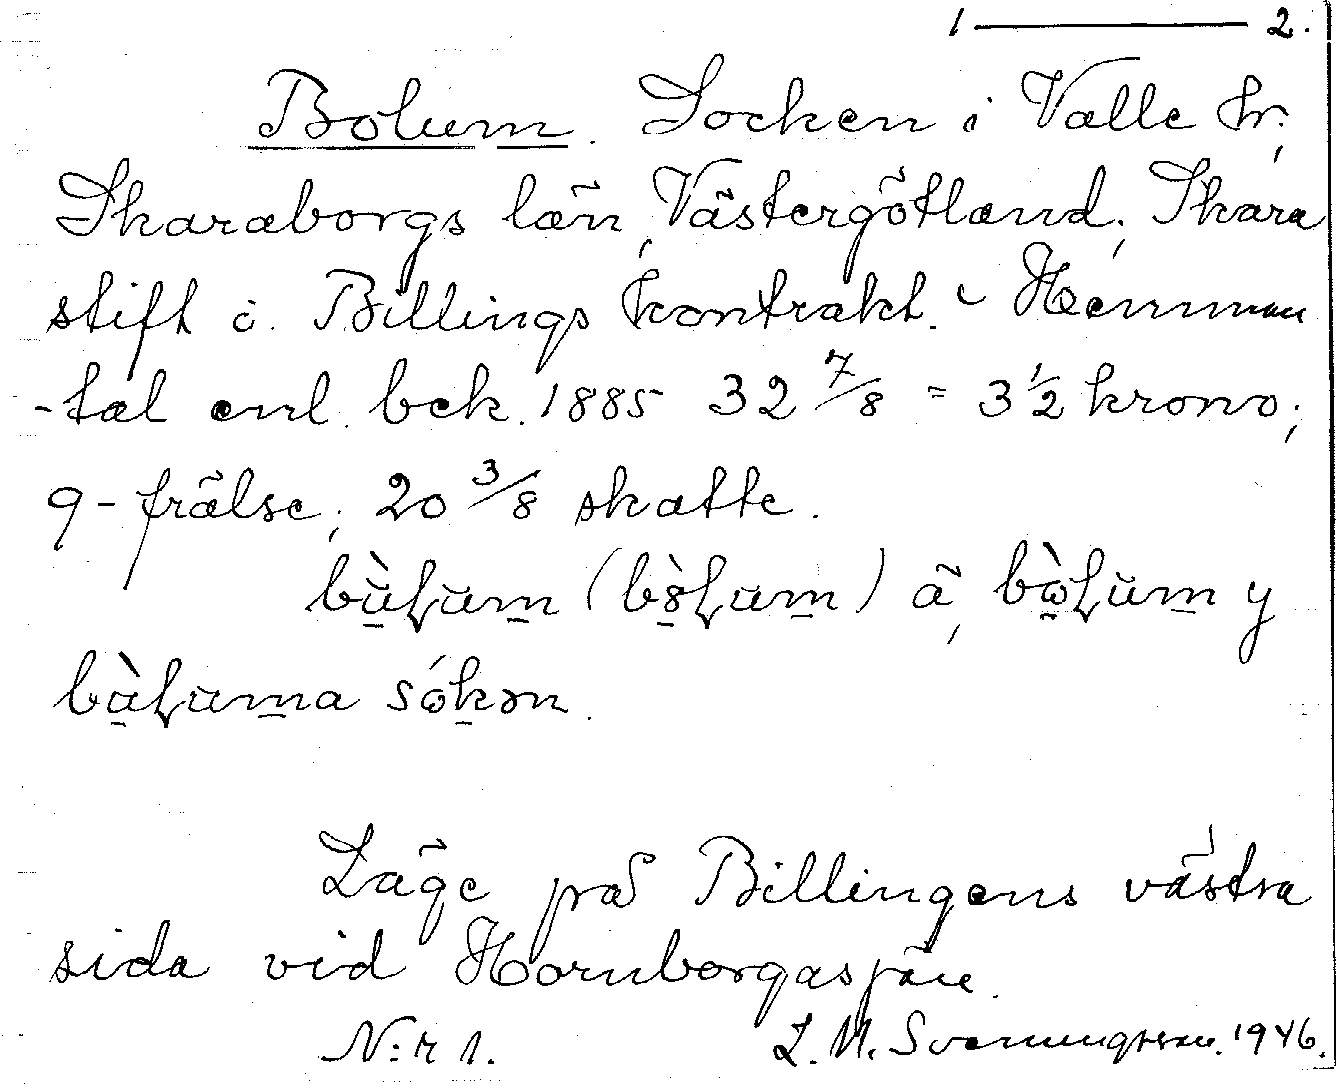 1 ——— 2.
Bolum. Socken i Valle hr;
Skaraborgs län, Västergötland; Skara
stift i Billings kontrakt. - Hemman
-tal enl. bek. 1885 32 7/8 = 3 1/2 krono;
9 - frälse; 20 3/8 skatte.
(                ) ä, y
sókən.
Läge på Billingens västra
sida vid Hornborgasjön.
N:r 1. L. M. Svenungsson. 1946.